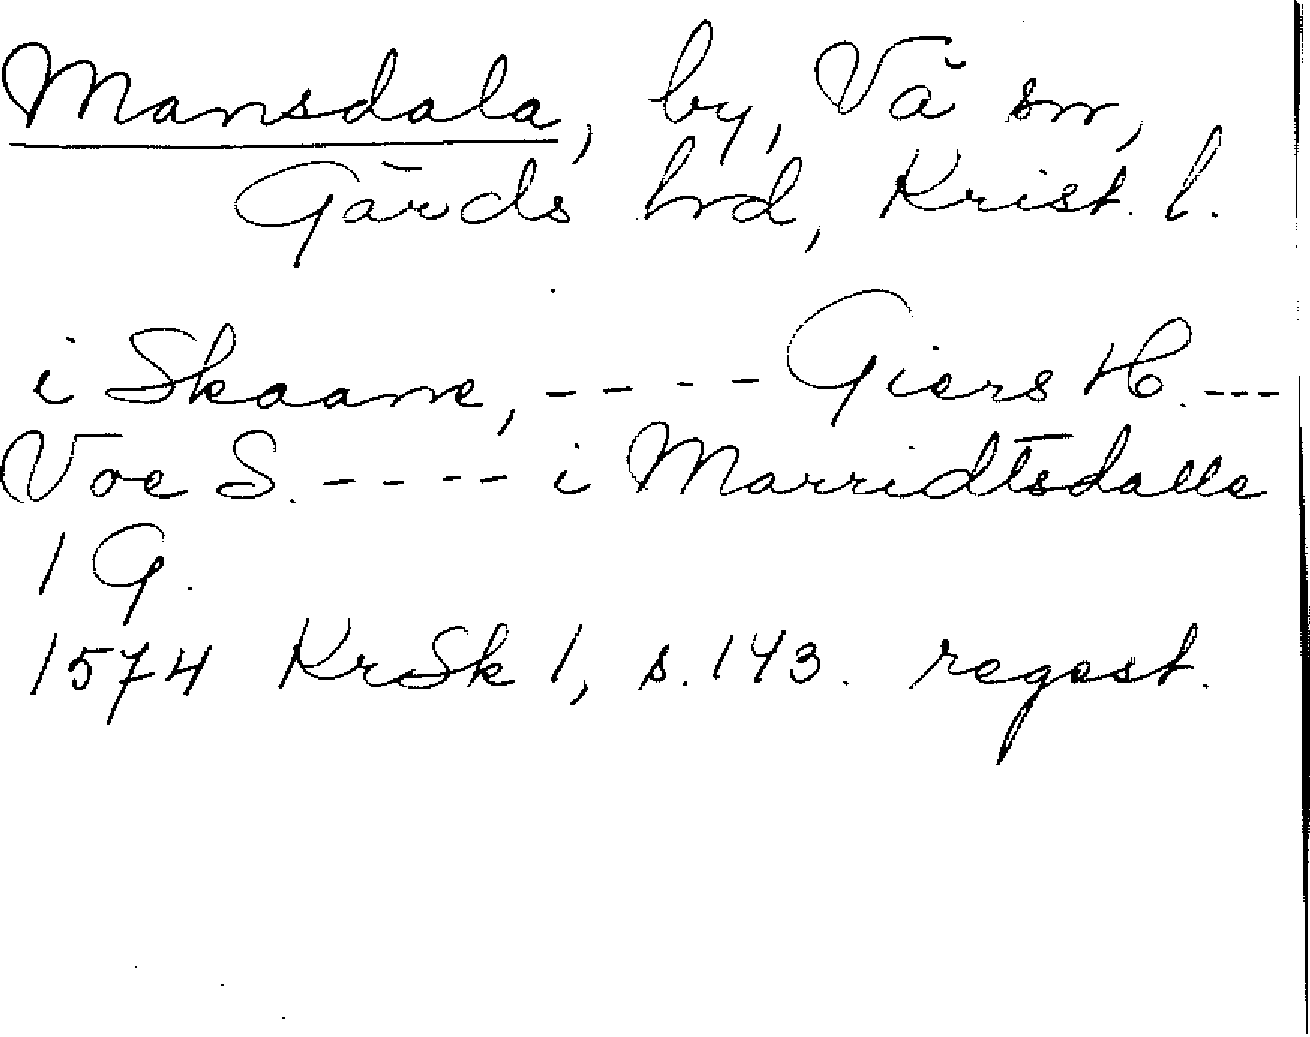 Mansdala, by, Vä sn,
Gärds hrd, Krist. l.
i Skaane, - - - - Giers H. - - -
Voe S. - - - - i Marridtsdalle
1 G.
1574 KrSk 1, s. 143. regest.